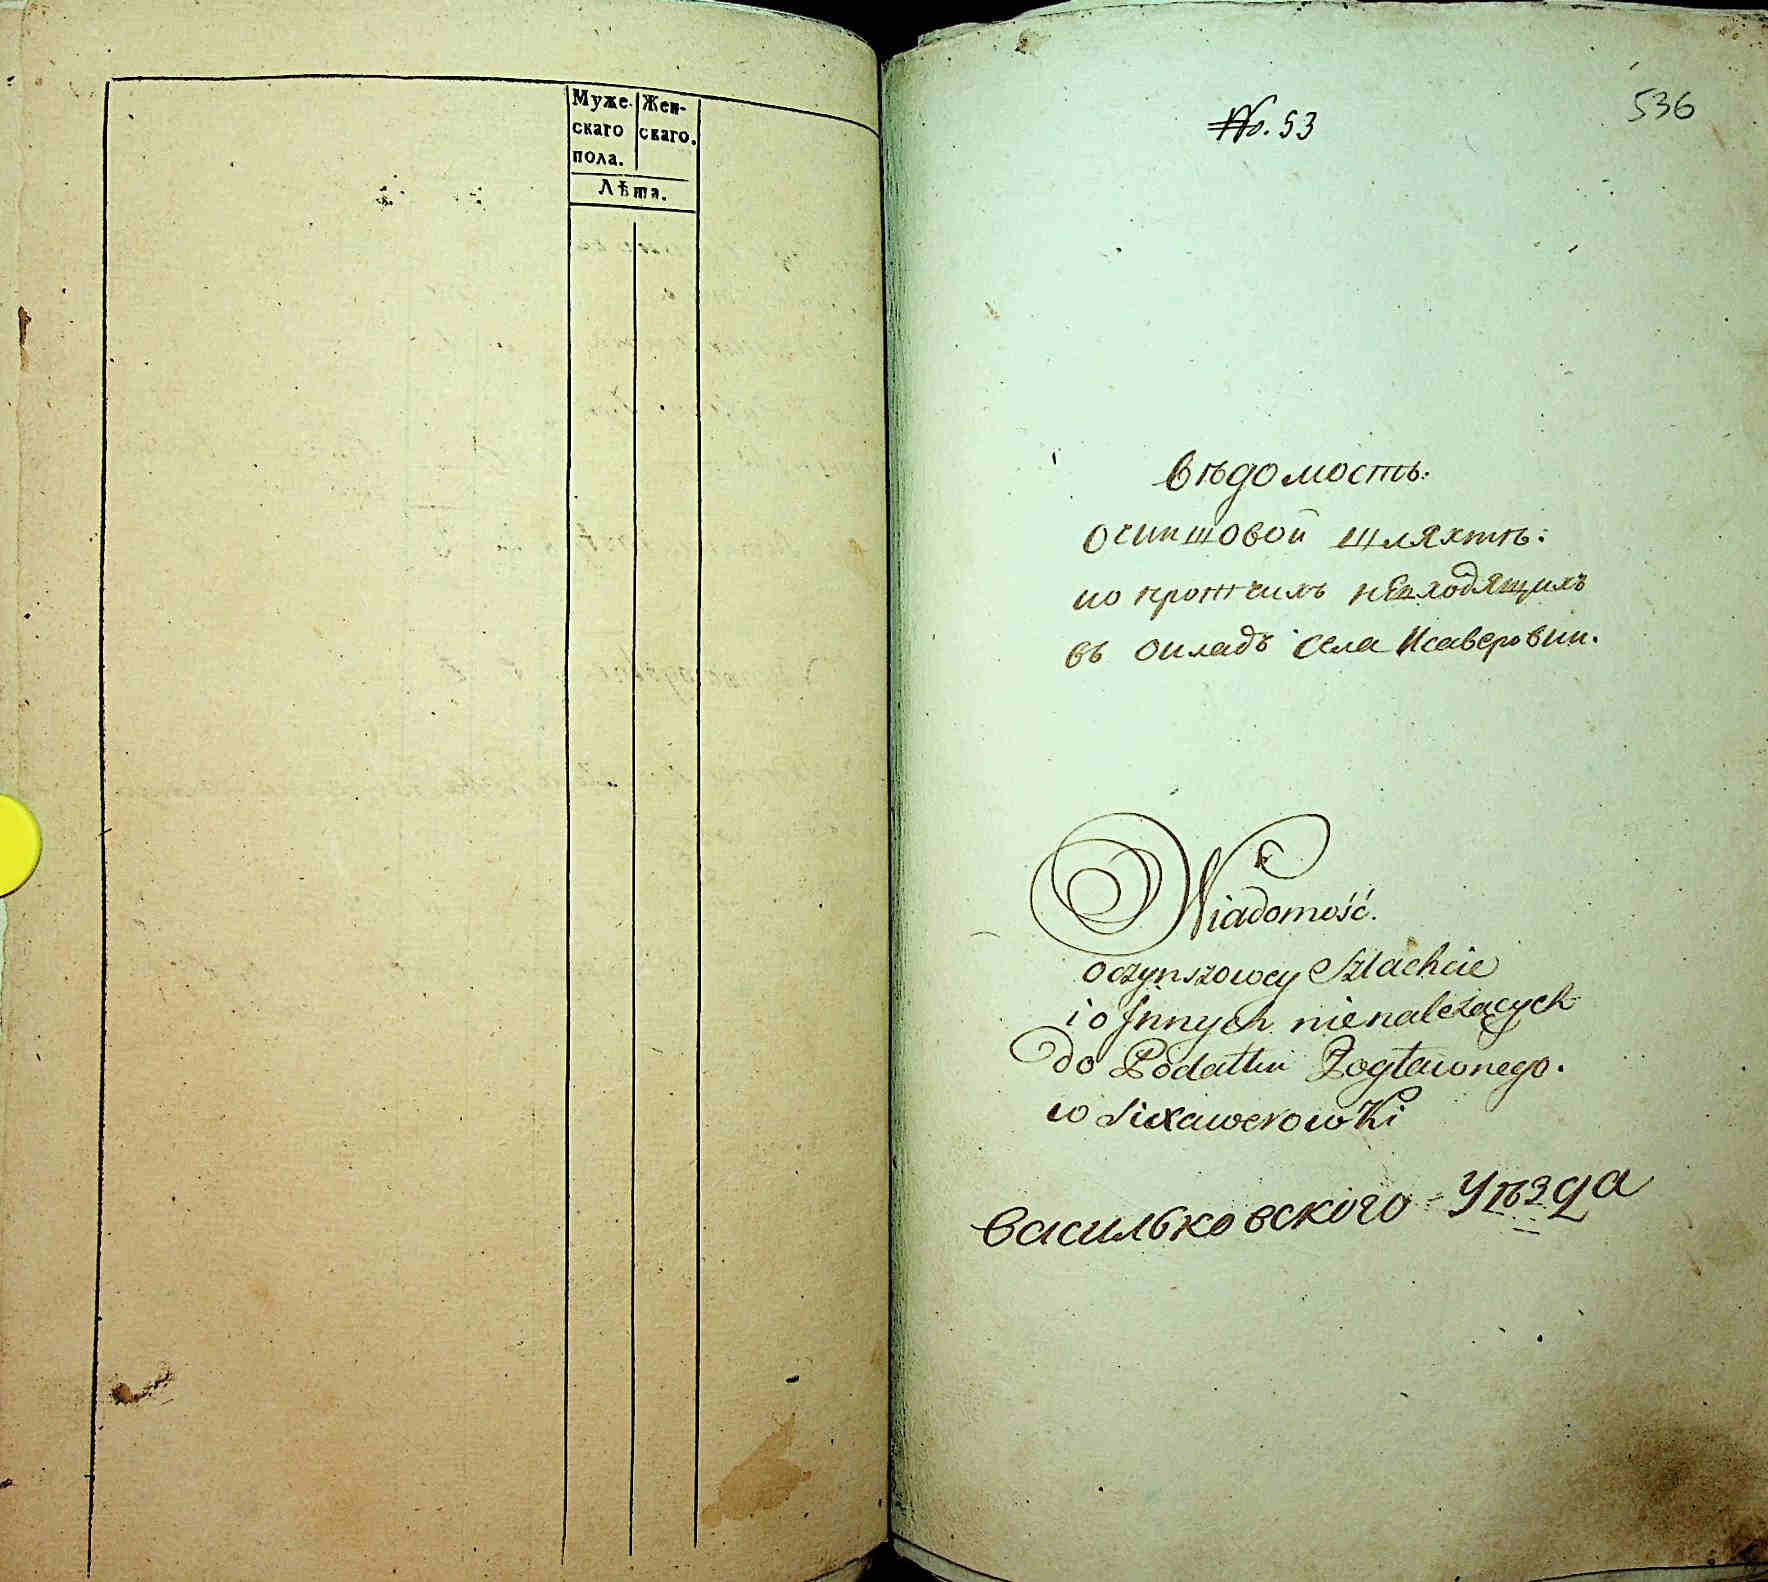 Муже- Жен-
скаго скаго.
пола.
Лѣта.
536
No. 53
Вѣдомость.
Очиншовой шляхтѣ:
ио протчимъ невходящихъ
въ окладъ села Ксаверовки.
Wiadomość.
oczynszowey Szlachcie
i o Jnnych nienależących
do Podatku Pogłownego.
w Xawerowki
Васильковского Уѣзда